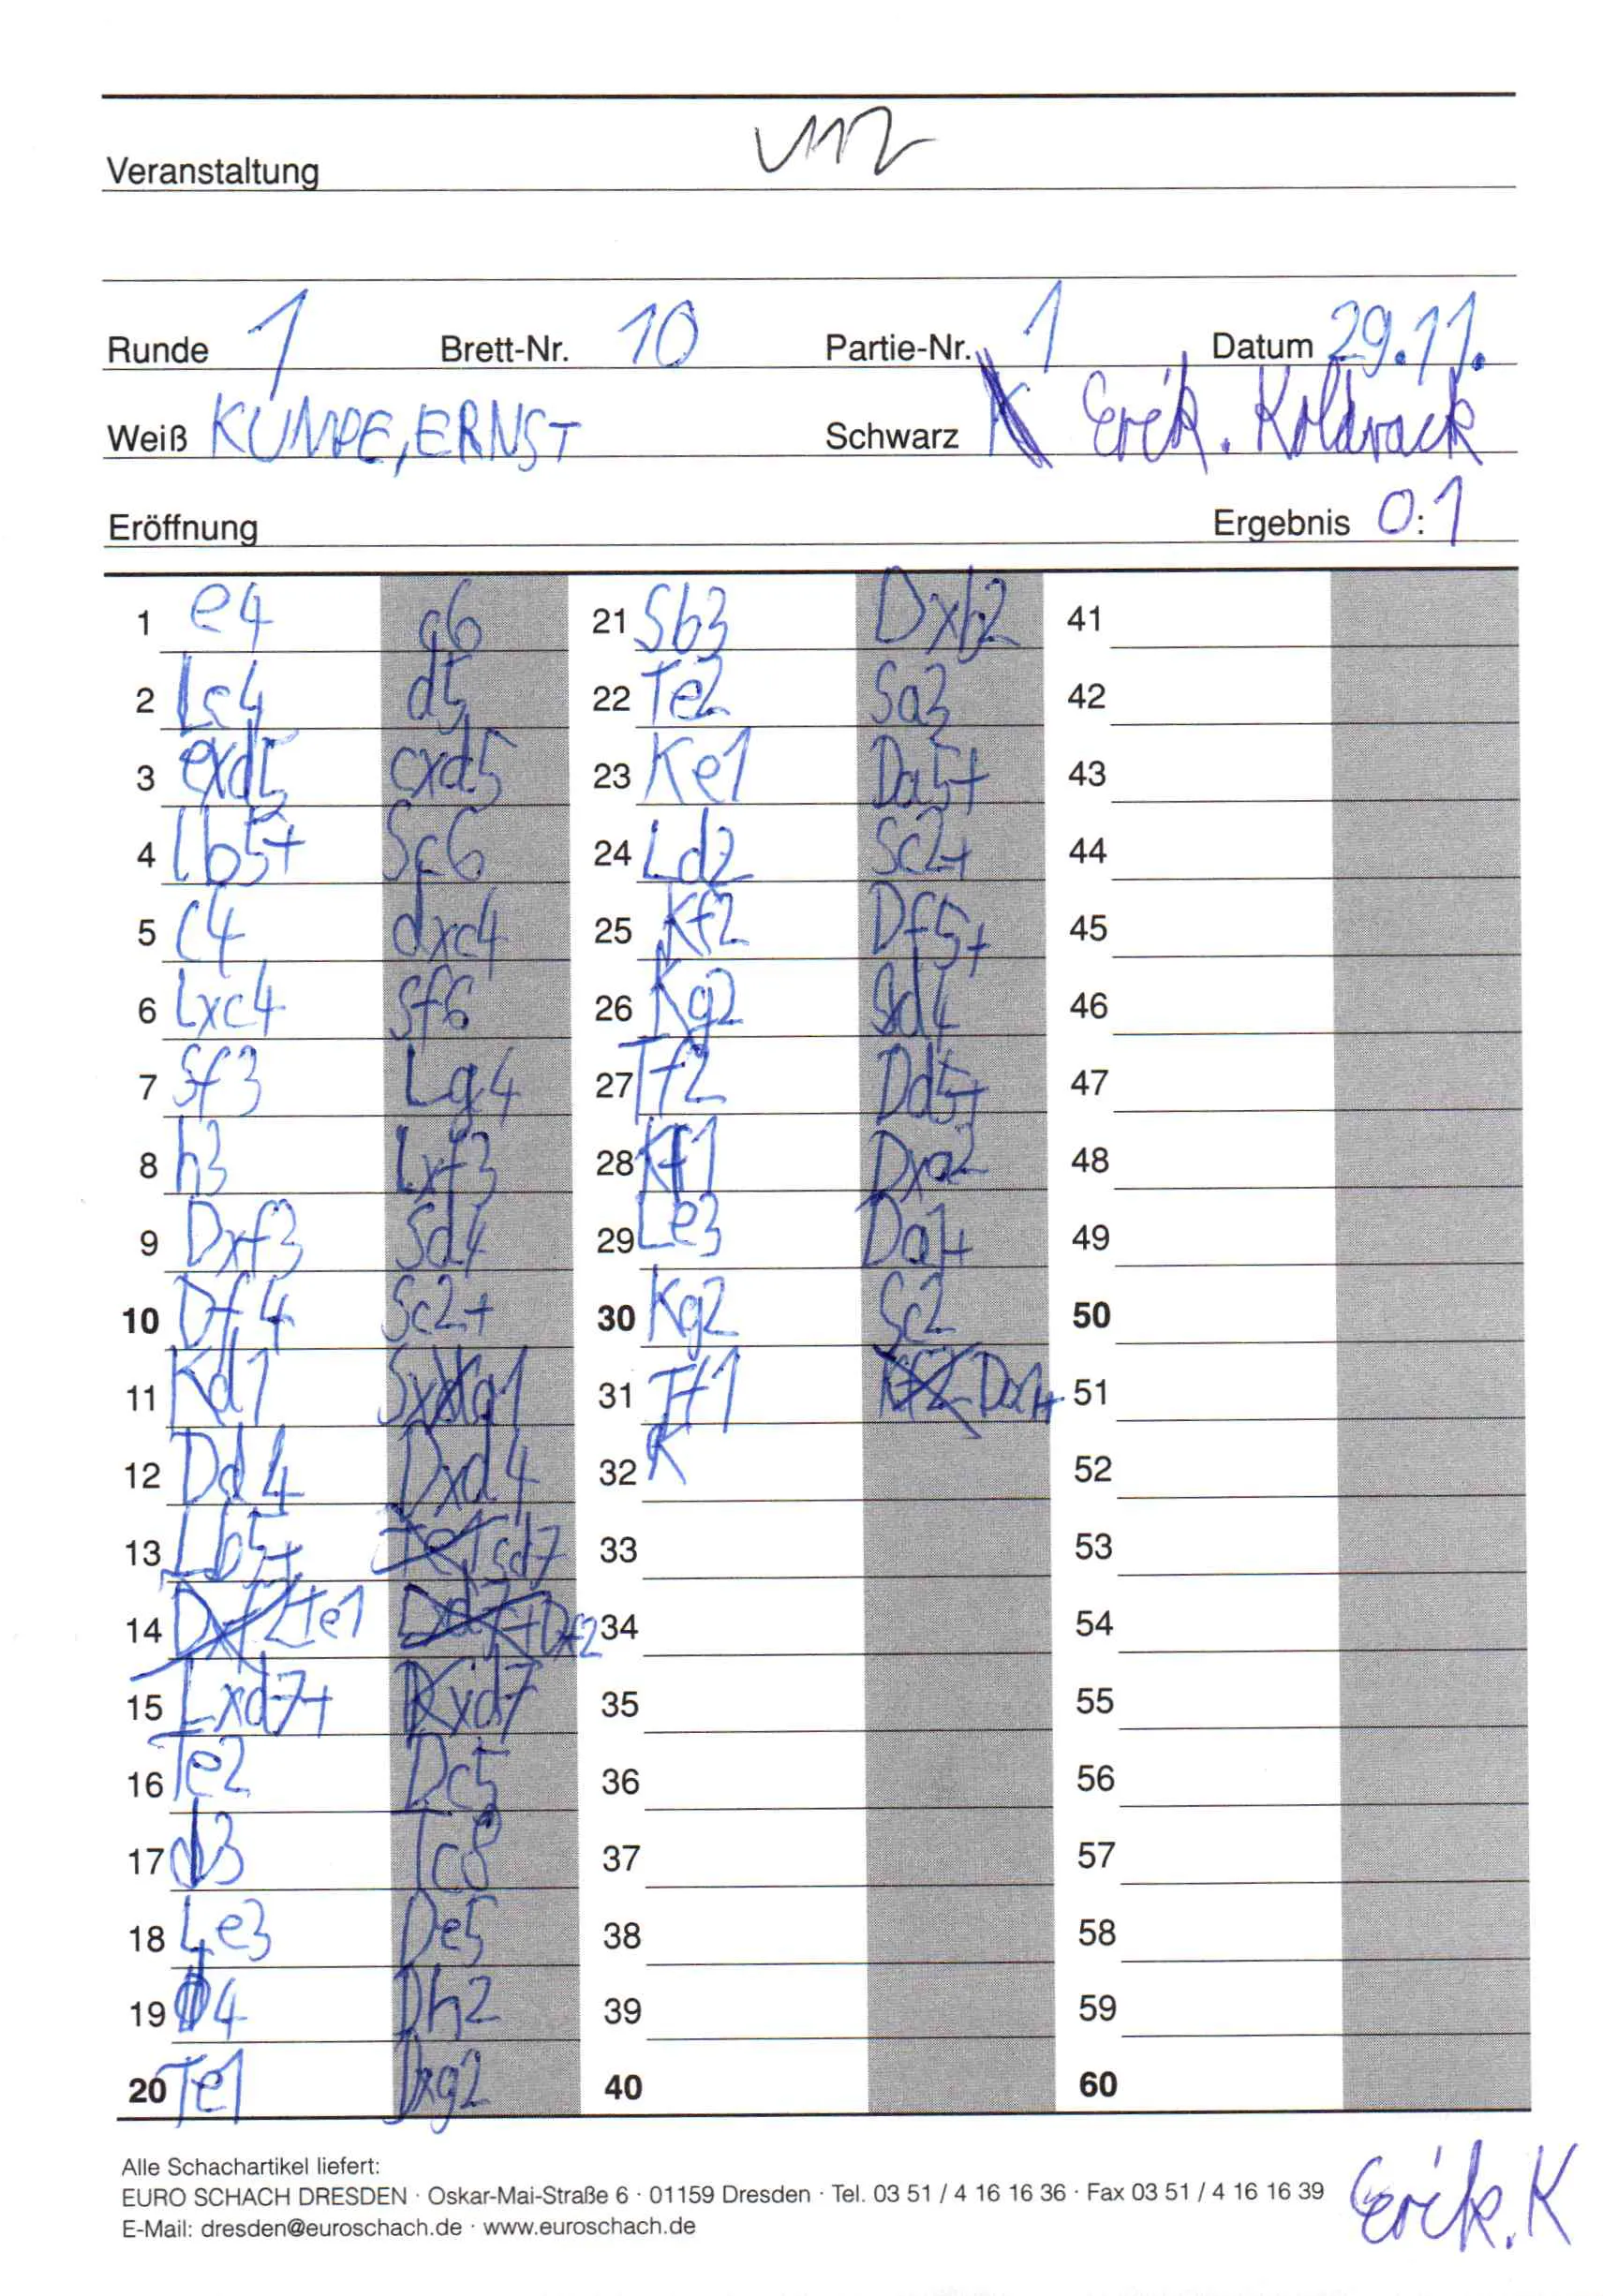 U12
Veranstaltung
Runde 1 Brett-Nr. 10 Partie-Nr. 1 Datum 29.11.
Weiß KUMPE, ERNST Schwarz Erik. Koldrack
Eröffnung Ergebnis 0:1
1 e4 c6 21 Sb3 Dxb2 41
2 Lc4 d5 22 Te2 Sa3 42
3 exd5 cxd5 23 Ke1 Da5+ 43
4 Lb5+ Sc6 24 Ld2 Sc2+ 44
5 c4 dxc4 25 Kf2 Df5+ 45
6 Lxc4 Sf6 26 Kg2 Sd4 46
7 Sf3 Lg4 27 Tf2 Dd5+ 47
8 h3 Lxf3 28 Kf1 Dxa2 48
9 Dxf3 Sd4 29 Le3 Da1+ 49
10 Df4 Sc2+ 30 Kg2 Sc2 50
11 Kd1 Sxa1 31 Tf1 Da1+ 51
12 Dd4 Dxd4 32 K 52
13 Lb5+ Sd7 33 53
14 Te1 Dxf2 34 54
15 Lxd7+ Kxd7 35 55
16 Te2 Dc5 36 56
17 d3 Tc8 37 57
18 Le3 De5 38 58
19 d4 Dh2 39 59
20 Te1 Dxg2 40 60
Alle Schachartikel liefert:
EURO SCHACH DRESDEN · Oskar-Mai-Straße 6 · 01159 Dresden · Tel. 03 51 / 4 16 16 36 · Fax 03 51 / 4 16 16 39
E-Mail: dresden@euroschach.de · www.euroschach.de
Erik. K